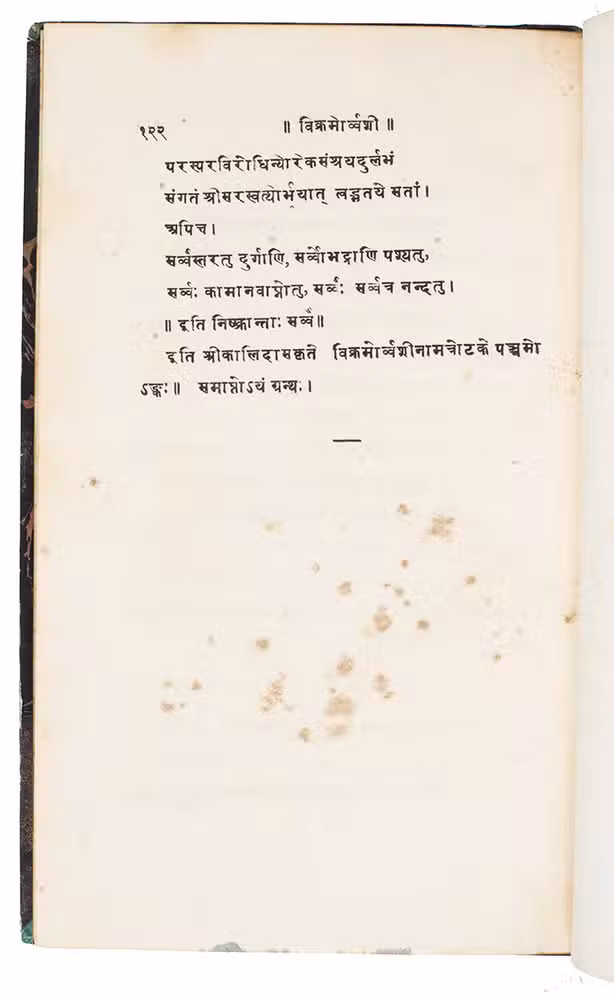 १२२ ॥ विक्रमोर्व्वशी ॥
परस्परविरोधिन्योरेकसंश्रयदुर्लभं
संगतं श्रीसरस्वत्योर्भूयात् लद्भूतये सतां।
अपिच।
सर्व्वस्तरतु दुर्गाणि, सर्व्वोभद्राणि पश्यतु,
सर्व्वः कामानवाप्नोतु, सर्व्वः सर्व्वच नन्दतु।
॥ इति निष्क्रान्ताः सर्व्वे॥
इति श्रीकालिदासकृते विक्रमोर्व्वशीनामचोटके पञ्चमो
ऽङ्कः॥ समाप्तोऽयं ग्रन्थः।